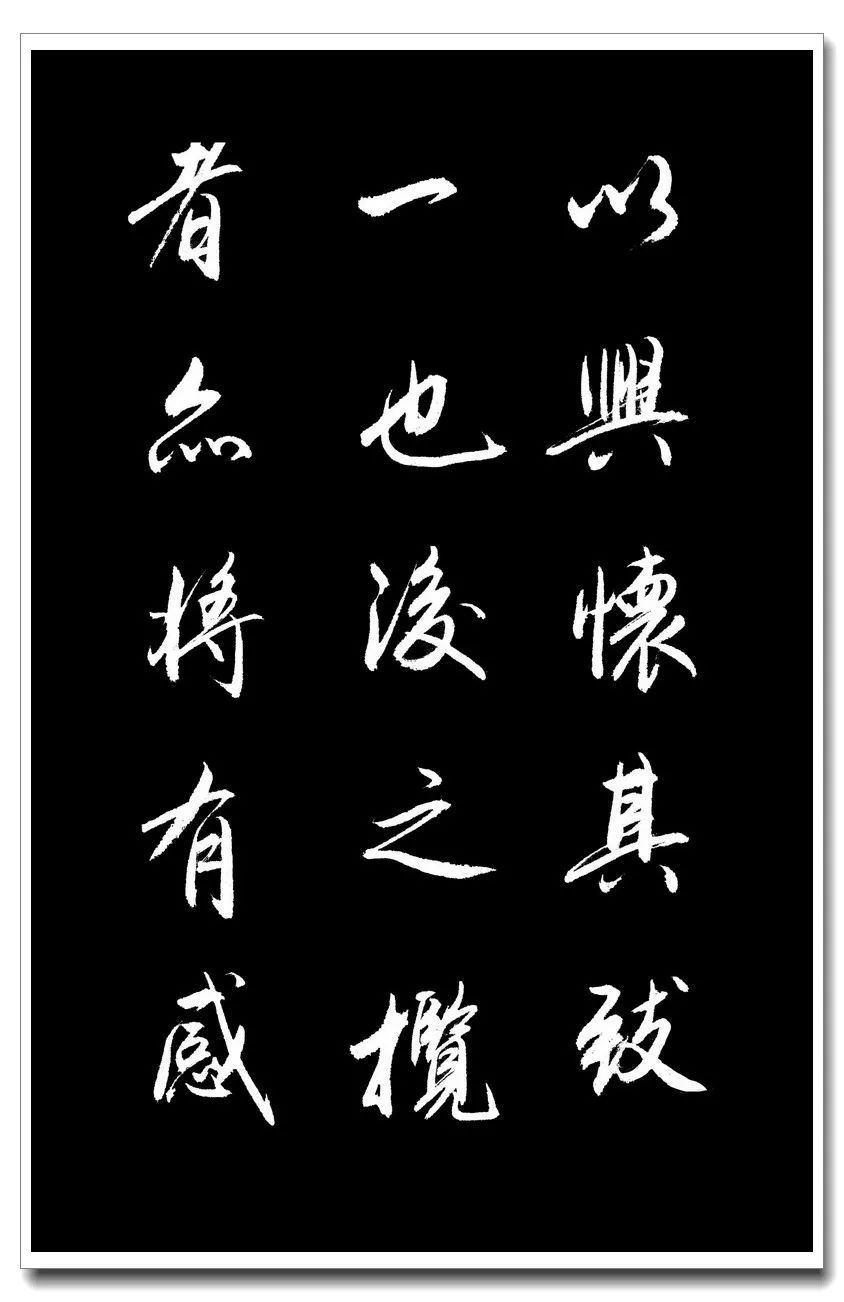 以興懷其致
一也後之攬
者亦將有感